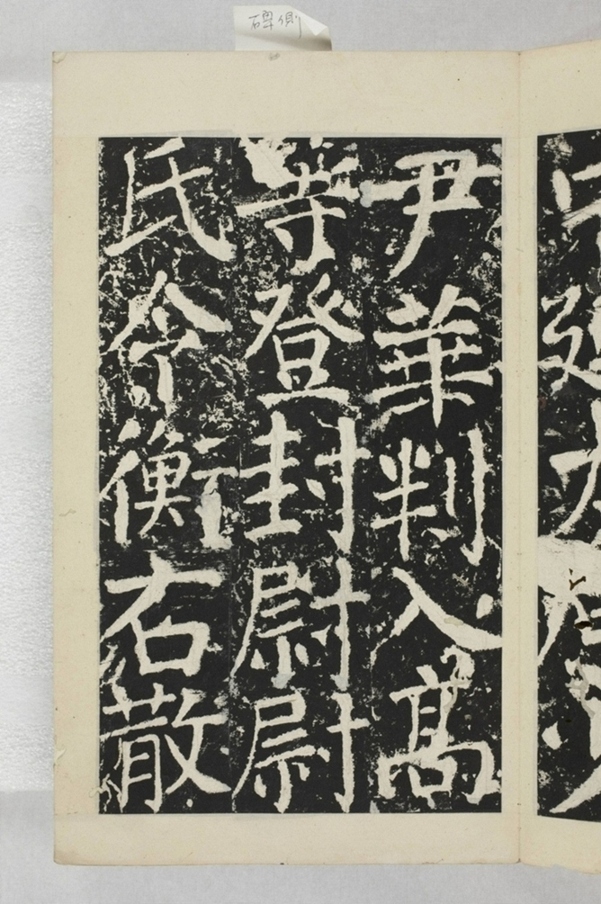 碑側
尹華判入高
等登封尉尉
氏令衡右散